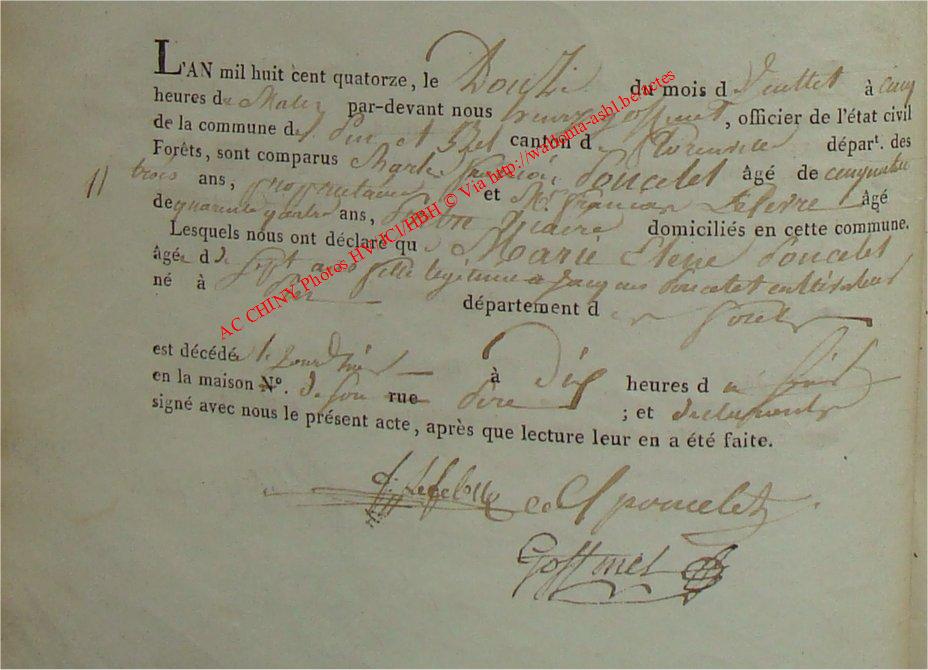 L'AN mil huit cent quatorze, le Douze du mois de Juillet à cinq
heures du Matin par-devant nous offmet, officier de l'état civil
de la commune de Pin et Izel canton de Florenville départ. des
Forêts, sont comparus Charle Poncelet âgé de cinquante
11 trois ans, proprietaire et Mr. François Lefevre âgé
de quarante quatre ans, Vicaire domiciliés en cette commune.
Lesquels nous ont déclaré que Marie Elene Poncelet
âgée de Sept ans fille legitime a Jacques Poncelet cultivateur
né à département de
est décédée le jour d'hier à Dix heures du Soir
en la maison N°. de son rue Pere ; et declarants
signé avec nous le présent acte, après que lecture leur en a été faite.
Poncelet
Goffinet
AC CHINY Photos HV/JCI/HBH © Via http://wallonia-asbl.be/actes